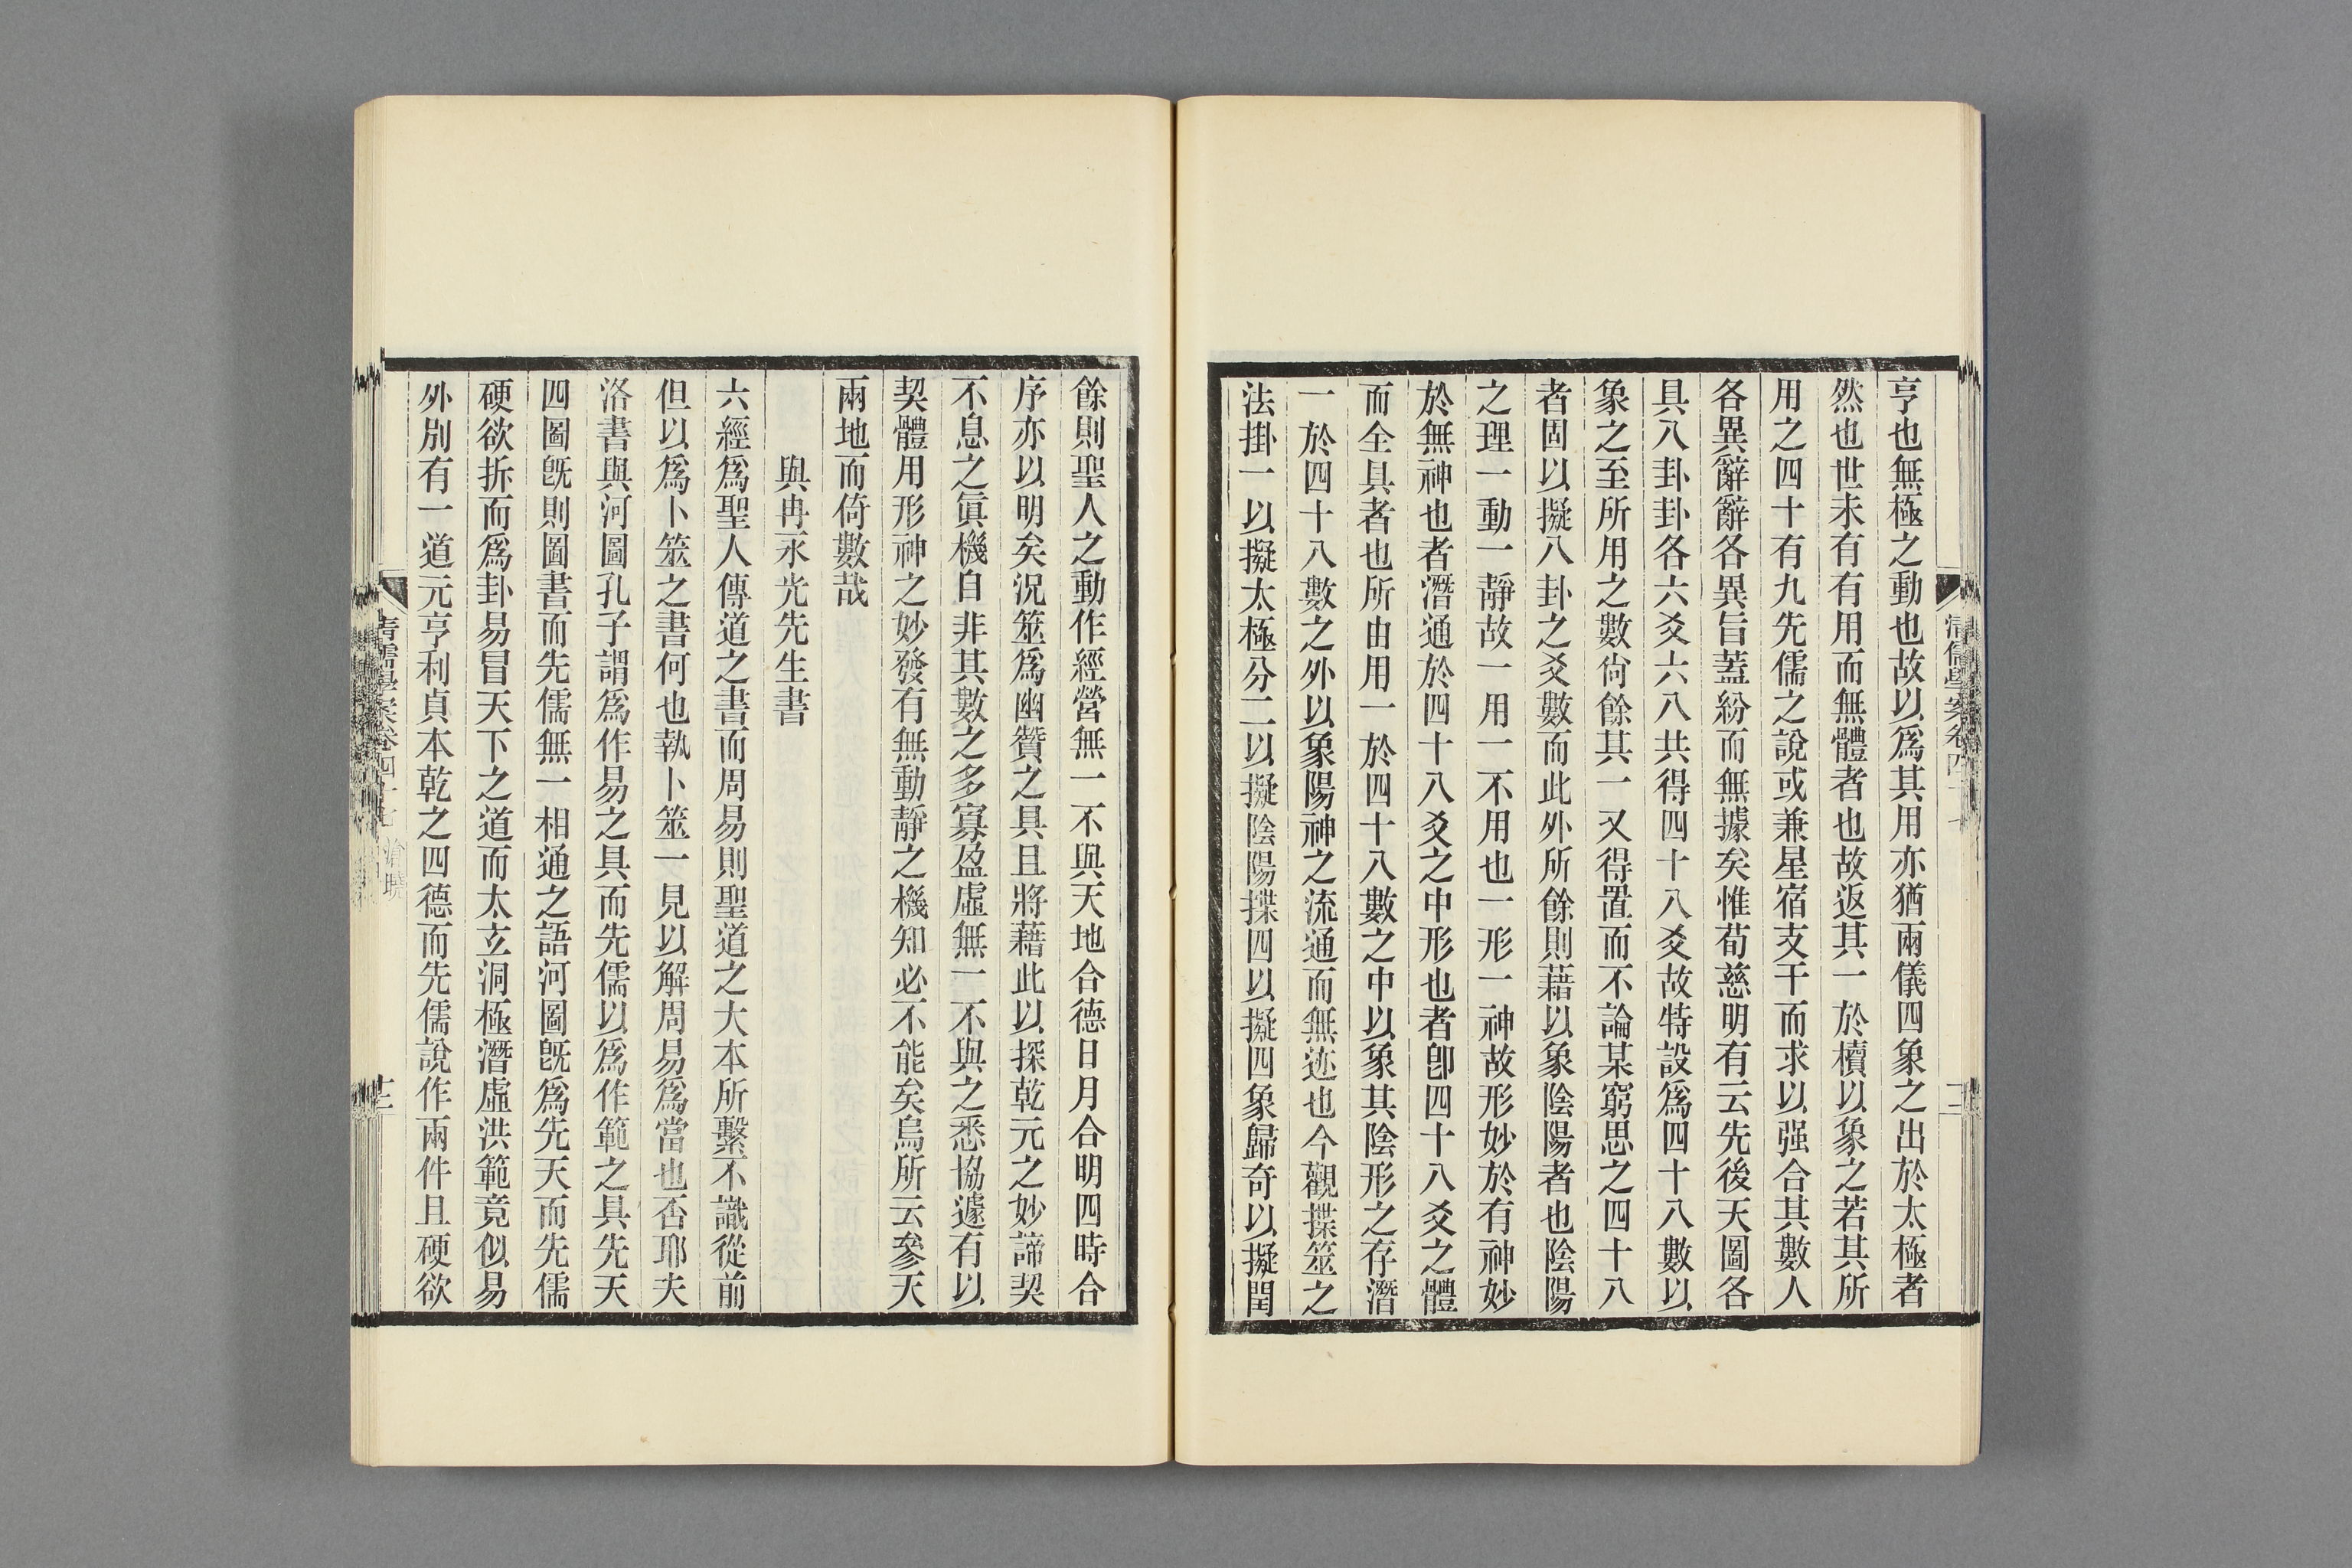 亨也無極之動也故以爲其用亦猶兩儀四象之出於太極者
然也世未有有用而無體者也故返其一於櫝以象之若其所
用之四十有九先儒之說或兼星宿支干而求以强合其數人
各異辭辭各異旨蓋紛而無據矣惟荀慈明有云先後天圖各
具八卦卦各六爻六八共得四十八爻故特設爲四十八數以
象之至所用之數尙餘其一又得置而不論某窮思之四十八
者固以擬八卦之爻數而此外所餘則藉以象陰陽者也陰陽
之理一動一靜故一用一不用也一形一神故形妙於有神妙
於無神也者潛通於四十八爻之中形也者卽四十八爻之體
而全具者也所由用一於四十八數之中以象其陰形之存潛
一於四十八數之外以象陽神之流通而無迹也今觀揲筮之
法掛一以擬太極分二以擬陰陽揲四以擬四象歸奇以擬閏
餘則聖人之動作經營無一不與天地合德日月合明四時合
序亦以明矣況筮爲幽贊之具且將藉此以探乾元之妙諦契
不息之眞機自非其數之多寡盈虛無一不與之悉協遽有以
契體用形神之妙發有無動靜之機知必不能矣烏所云參天
兩地而倚數哉
與冉永光先生書
六經爲聖人傳道之書而周易則聖道之大本所繫不識從前
但以爲卜筮之書何也執卜筮一見以解周易爲當也否耶夫
洛書與河圖孔子謂爲作易之具而先儒以爲作範之具先天
四圖旣則圖書而先儒無一相通之語河圖旣爲先天而先儒
硬欲拆而爲卦易冒天下之道而太玄洞極潛虛洪範竟似易
外別有一道元亨利貞本乾之四德而先儒說作兩件且硬欲
清儒學案卷四十七